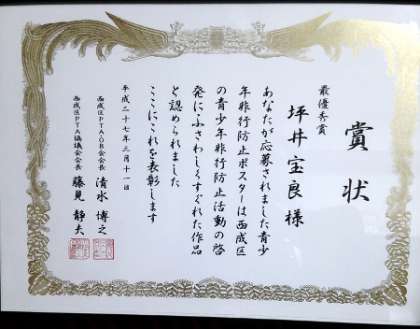 賞状
最優秀賞
坪井宝良様
あなたが応募されました青少
年非行防止ポスターは西成区
の青少年非行防止活動の啓
発にふさわしくすぐれた作品
と認められました
ここにこれを表彰します
平成二十七年三月十一日
西成区PTAOB会会長 清水博之
西成区PTA協議会会長 藤見静夫